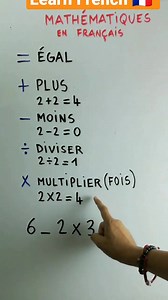 Learn French 🇫🇷
MATHÉMATIQUES
EN FRANÇAIS
= ÉGAL
+ PLUS
2+2=4
- MOINS
2-2=0
÷ DIVISER
2÷2=1
× MULTIPLIER (FOIS)
2×2=4
6_2×3